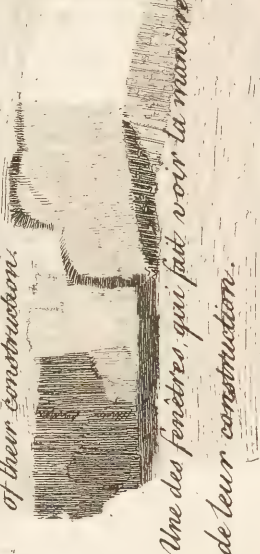 of their construction.
Une des fenêtres, qui fait voir la maniere
de leur construction.